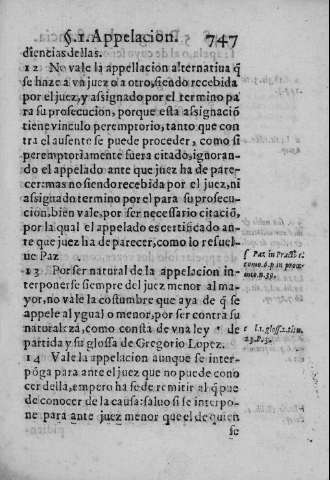 §.1. Appelacion. 747
diencias dellas.
12 No vale la appellacion alternatiua q̃
se haze a vn juez o a otro, siendo recebida
por el juez, y assignado por el termino pa
ra su prosecucion, porque esta assignaciõ
tiene vinculo peremptorio, tanto que con
tra el ausente se puede proceder, como si
peremptoriamente fuera citado, ignoran-
do el appelado ante que juez ha de pare-
cer: mas no siendo recebida por el juez, ni
assignado termino por el para su prosecu-
cion. bien vale, por ser necessario citaciõ,
por la qual el appelado es certificado an-
te que juez ha de parecer, como lo resuel-
ue Paz
13 Por ser natural de la appelacion in-
terponerse siempre del juez menor al ma-
yor, no vale la costumbre que aya de q̃ se
appele al ygual o menor, por ser contra su
naturaleza, como consta de vna ley de
partida y su glossa de Gregorio Lopez.
14 Vale la appelacion aunque se inter-
põga para ante el juez que no puede cono
cer della, empero ha se de remitir al q̃ pue
de conocer de la causa: saluo si se interpo-
ne para ante juez menor que el de quien
se
f Paz in Pract. t.
n. 39.
t l. 1. gloss.
23. P. 3.